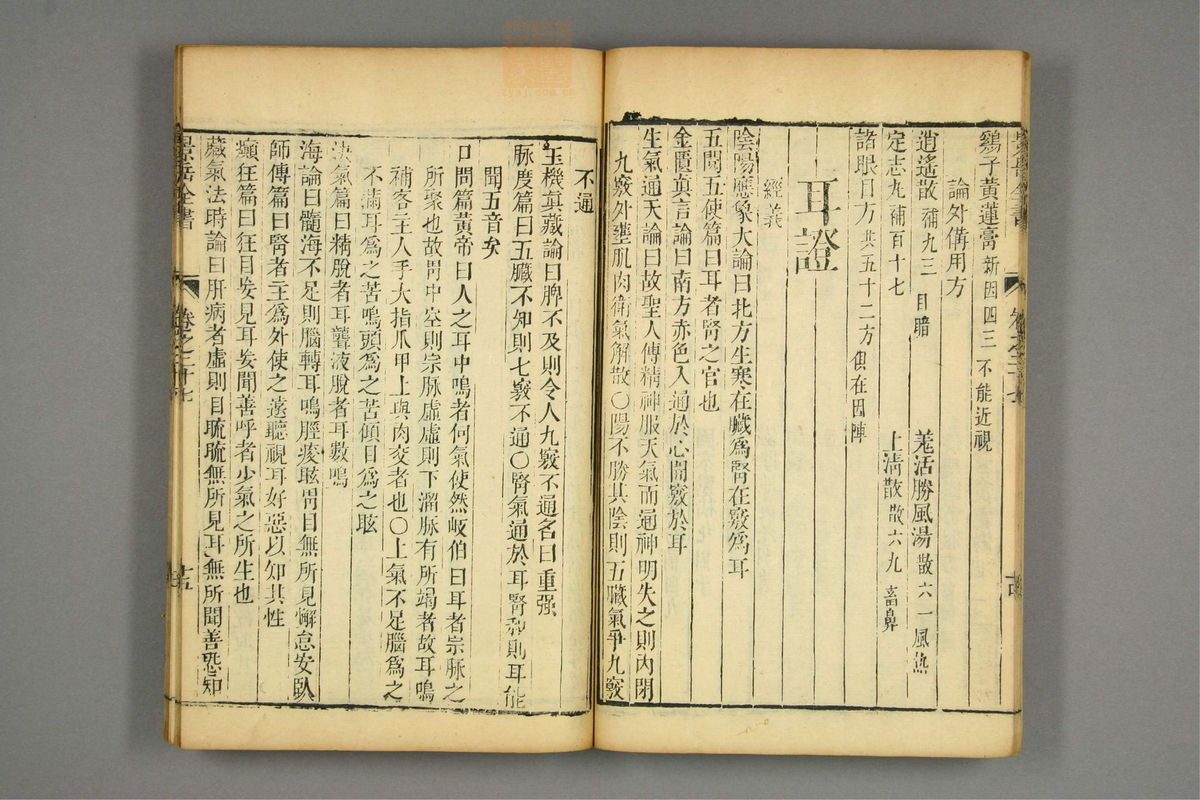 鷄子黃蓮膏新因四三不能近視
論外備用方
逍遙散補九三 目暗 羗活勝風湯散六一風熱
定志丸補百十七 上清散散六九 畜鼻
諸眼目方共五十二方俱在因陣
耳證
經義
陰陽應象大論曰北方生寒在臟為腎在竅為耳
五閱五使篇曰耳者腎之官也
金匱真言論曰南方赤色入通於心開竅於耳
生氣通天論曰故聖人傳精神服天氣而通神明失之則內閉
九竅外壅肌肉衛氣解散○陽不勝其陰則五臟氣爭九竅
不通
玉機真藏論曰脾不及則令人九竅不通名曰重强
脉度篇曰五臟不和則七竅不通○腎氣通於耳腎和則耳能
聞五音矣
口問篇黃帝曰人之耳中鳴者何氣使然岐伯曰耳者宗脉之
所聚也故胃中空則宗脉虛虛則下溜脉有所竭者故耳鳴
補客主人手大指爪甲上與肉交者也○上氣不足腦為之
不滿耳為之苦鳴頭為之苦傾目為之眩
決氣篇曰精脫者耳聾液脫者耳數鳴
海論曰髓海不足則腦轉耳鳴脛痠眩冐目無所見懈怠安臥
師傳篇曰腎者主為外使之遠聽視耳好惡以知其性
癲狂篇曰狂目妄見耳妄聞善呼者少氣之所生也
藏氣法時論曰肝病者虛則目䀮䀮無所見耳無所聞善恐如
景岳全書
卷之二十七
十五